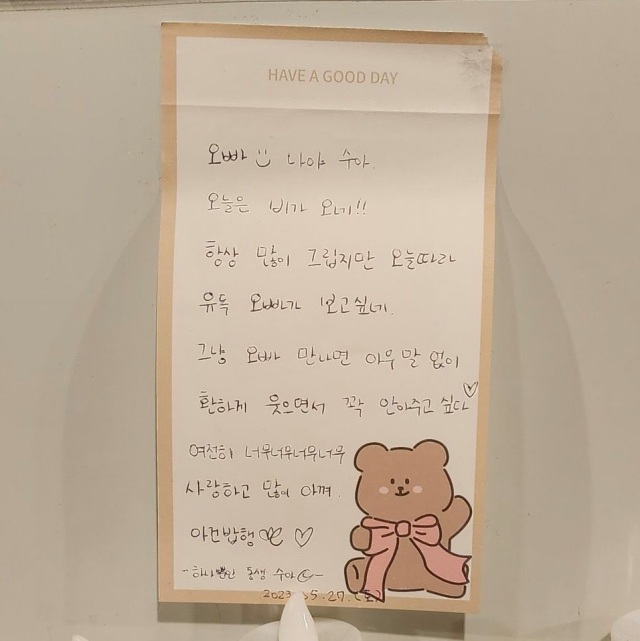 HAVE A GOOD DAY
오빠 나야 수아.
오늘은 비가 오네!!
항상 많이 그립지만 오늘따라
유독 오빠가 보고싶네.
그냥 오빠 만나면 아무 말 없이
환하게 웃으면서 꽉 안아주고 싶다♡
여전히 너무너무너무너무
사랑하고 많이 아껴.
아건밥행 ♡
-하나뿐인 동생 수아-
2023. 5. 27. (토)